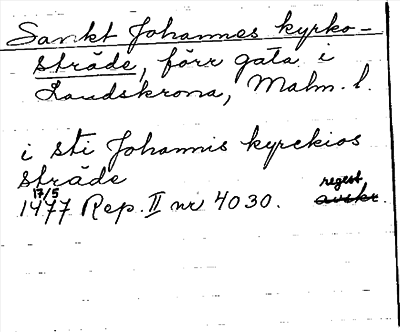 Sankt Johannes kyrko-
stråde, förr gata i
Landskrona, Malm. l.
i sti Johannis kyrckios
stråde
17/5
1477 Rep. II nr 4030. regest
avskr.